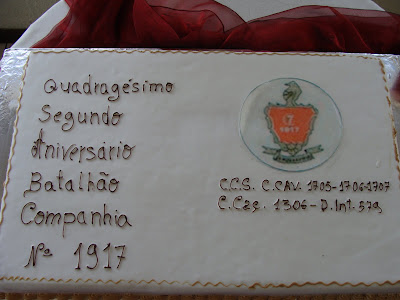 Quadragésimo
Segundo
Aniversário
Batalhão
Companhia
Nº 1917
1917
C.C.S. C.CAV. 1705-1706-1707
C.Caç. 1306-D.Int. 579,